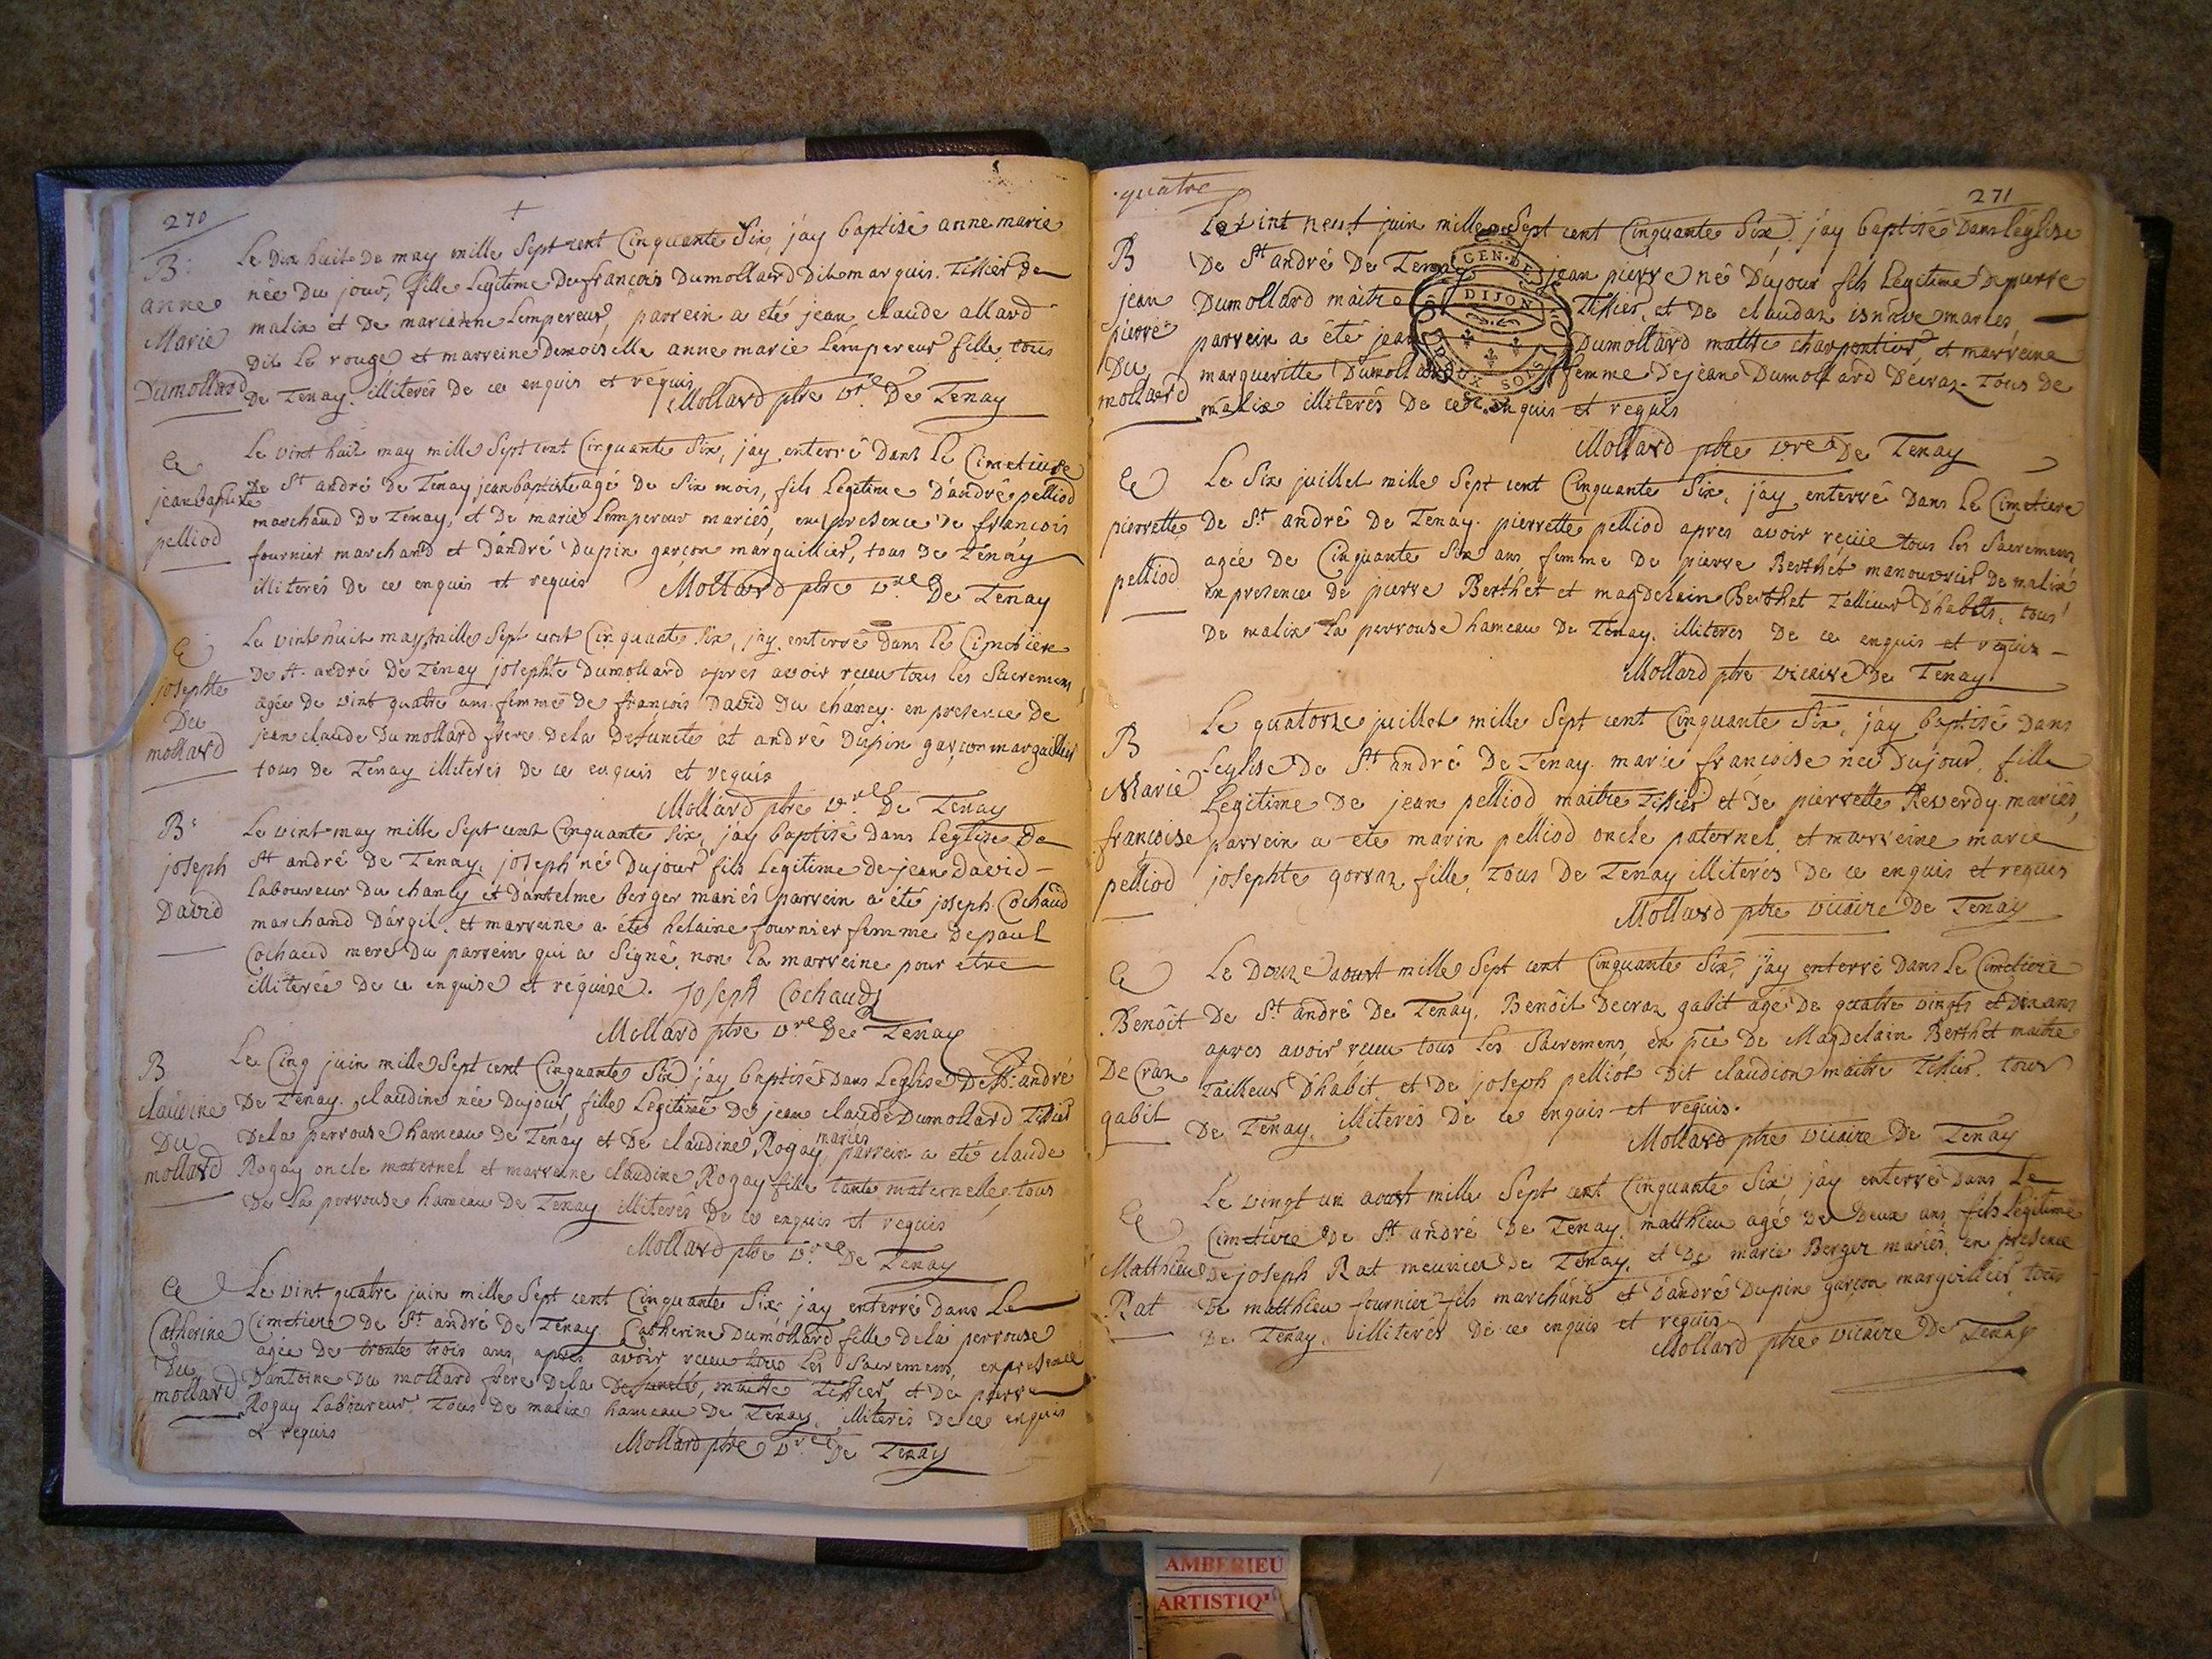 270
B:
anne
Marie
Dumollard
Le Dix huit De may mille Sept cent Cinquante Six, j'ay baptisé anne marie
née Du jour, fille Legitime De francois Dumollard Dit marquis. Tissier de
malix et De marianne Lempereur, parrein a eté jean claude allard
Dit Le rouge et marreine Demoiselle anne marie Lempereur fille tous
De Tenay. illiterés De ce enquis et requis
Mollard ptre vre De Tenay
E
jean baptiste
pelliod
Le vint huit may mille Sept cent Cinquante Six, j'ay enterré Dans Le Cimetiere
De St andré De Tenay jean baptiste agé De Six mois, fils Legitime D'andré pelliod
marchand De Tenay, et De marie Lempereur mariés, en presence De francois
fournier marchand et D'andré Dupin garçon marguillier, tous De Tenay
illiterés De ce enquis et requis
Mollard ptre vre De Tenay
E
josephte
Du
mollard
Le vint huit may mille Sept cent Cinquante Six, j'ay enterré Dans Le Cimetiere
De St andré De Tenay josephte Dumollard apres avoir receu tous Les Sacremens,
agée De vint quatre ans femme De francois David Du chancy. en presence De
jean claude Dumollard frere De la Defuncte et andré Dupin garçon marguillier
tous De Tenay illiterés De ce enquis et requis
Mollard ptre vre De Tenay
B:
joseph
David
Le vint may mille Sept cent Cinquante Six, j'ay baptisé Dans l'eglise De
St andré De Tenay, joseph né Dujour fils Legitime De jean David
Laboureur Du chancy et D'antelme berger mariés parrein a été joseph Cochaud
marchand D'argil. et marreine a été helaine fournier femme De paul
Cochaud mere Du parrein qui a Signé, non La marreine pour etre
illiterée De ce enquise et réquise.
Joseph Cochaud
Mollard ptre vre De Tenay
B
claudine
Du
mollard
Le Cinq juin mille Sept cent Cinquante Six j'ay baptisé Dans L'eglise De St andré
De Tenay. claudine née Dujour, fille Legitime De jean claude Dumollard Tissier
De la perrouse hameau De Tenay et De claudine Rogay mariés, parrein a eté claude
Rogay oncle maternel et marreine claudine Rogay fille tante maternelle, tous
De La perrouse hameau De Tenay illiterés De ce enquis et requis
Mollard ptre vre De Tenay
E
Catherine
Du
mollard
Le vint quatre juin mille Sept cent Cinquante Six j'ay enterré Dans Le
Cimetiere De St andré De Tenay Catherine Dumollard fille De la perrouse
agée De trente trois ans, apres avoir receu tous Les Sacremens, en presence
D'antoine Du mollard frere De la Defuncte, maitre Tissier, et De pierre
Rogay Laboureur. Tous De malix hameau De Tenay, illiterés De ce enquis
et requis
Mollard ptre vre De Tenay
quatre
271
B
jean
pierre
Du
mollard
Le vint neuf juin mille Sept cent Cinquante Six. j'ay baptisé Dans l'églize
De St andré De Tenay jean pierre né Dujour fils Legitime De pierre
Dumollard maitre Tissier, et De claudaz mariés,
parrein a été jean Dumollard maitre charpentier, et marreine
margueritte Dumollard femme De jean Dumollard Décraz. Tous De
malix illiterés De ce enquis et requis
Mollard ptre vre De Tenay
GEN. DE
DIJON
DEUX SOLS
E
pierrette
pelliod
Le Six juillet mille Sept cent Cinquante Six, j'ay enterré Dans Le Cimetiere
De St andré De Tenay. pierrette pelliod apres avoir reçüe tous Les Sacremens,
agée De Cinquante Six ans, femme De pierre Berthet manouvrier De malix
en presence De pierre Berthet et magdelein Berthet Tallieur D'habits, tous
De malix La perrouse hameau De Tenay. illiterés De ce enquis et requis
Mollard ptre vicaire De Tenay
B
Marie
françoise
pelliod
Le quatorze juillet mille Sept cent Cinquante Six, j'ay baptisé Dans
Leglise De St andré De Tenay. marie françoise née Dujour, fille
Legitime De jean pelliod maitre Tissier et De pierrette Reverdy mariés,
parrein a eté marin pelliod oncle paternel, et marreine marie
josephte gorraz fille, Tous De Tenay illiterés De ce enquis et requis
Mollard ptre vicaire De Tenay
E
Benôit
De Craz
gabit
Le Douze aoust mille Sept cent Cinquante Six, j'ay enterré Dans Le Cimetiere
De St andré De Tenay. Benôit Decraz gabit agé De quatre vingts et Dix ans
apres avoir receu tous Les Sacremens, en pce De Magdelain Berthet maitre
Tailleur D'habit, et De joseph pelliot Dit claudion maitre Tissier. tous
De Tenay. illiterés De ce enquis et requis.
Mollard ptre vicaire De Tenay
E
Matthieu
Rat
Le vingt un aoust mille Sept cent Cinquante Six j'ay enterré Dans Le
Cimetiere De St andré De Tenay. matthieu agé De Deux ans, fils Legitime
De joseph Rat meunier De Tenay, et De marie Berger mariés, en presence
De matthieu fournier fils marchand et D'andré Dupin garçon marguillier tous
De Tenay, illiterés De ce enquis et requis
Mollard ptre vicaire De Tenay
AMBERIEU
ARTISTIQ